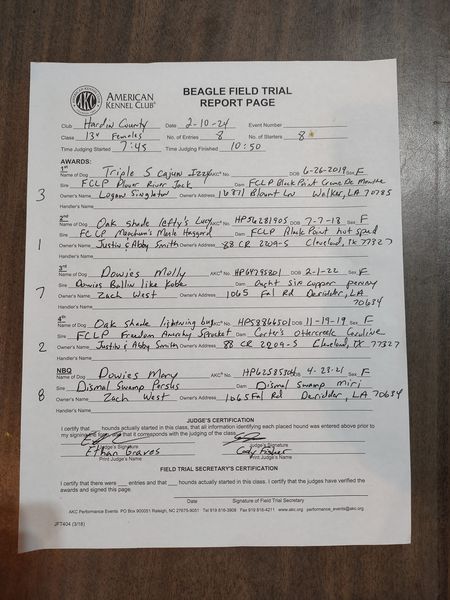 AMERICAN KENNEL CLUB®
BEAGLE FIELD TRIAL
REPORT PAGE
Club Hardin County Date 2-10-24 Event Number
Class 13" Females No. of Entries 8 No. of Starters 8
Time Judging Started 7:45 Time Judging Finished 10:50
AWARDS:
1st
Name of Dog Triple S Cajun Izzy AKC® No. DOB 6-26-2019 Sex F
Sire FCLP Plover River Jack Dam FCLP Black Point Creme De Menthe
3 Owner's Name Logan Singleton Owner's Address Blount Ln Walker, LA 70785
Handler's Name
2nd
Name of Dog Oak Shade Lefty's Lucy AKC® No. HP56281905 DOB 7-7-18 Sex F
Sire FCLP Merle Haggard Dam FCLP Black Point hot spud
1 Owner's Name Justin & Abby Smith Owner's Address 88 CR 2209-S Cleveland, TX 77327
Handler's Name
3rd
Name of Dog Dowies Molly AKC® No. HP64795801 DOB 2-1-22 Sex F
Sire Dowies Ballin like Kobe Dam copper penny
7 Owner's Name Zach West Owner's Address 1065 Fal Rd Deridder, LA
70634
Handler's Name
4th
Name of Dog Oak shade lightening bug AKC® No. HP58866501 DOB 11-19-19 Sex F
Sire FCLP Freedom Sprocket Dam Carter's ottercreek Caroline
2 Owner's Name Justin & Abby Smith Owner's Address 88 CR 2209-S Cleveland, TX 77327
Handler's Name
NBQ
Name of Dog Dowies Mary AKC® No. DOB 4-23-21 Sex F
Sire Dismal Swamp Dam Dismal Swamp miri
8 Owner's Name Zach West Owner's Address 1065 Fal Rd Deridder, LA 70634
Handler's Name
JUDGE'S CERTIFICATION
I certify that hounds actually started in this class, that all information identifying each placed hound was entered above prior to
my signing and that it corresponds with the judging of the class.
Judge's Signature Judge's Signature
Ethan Graves Cody Fisher
Print Judge's Name Print Judge's Name
FIELD TRIAL SECRETARY'S CERTIFICATION
I certify that there were entries and that hounds actually started in this class. I certify that the judges have verified the
awards and signed this page.
Date Signature of Field Trial Secretary
AKC Performance Events PO Box 900051 Raleigh, NC 27675-9051 Tel 919 816-3908 Fax 919 816-4211 www.akc.org performance_events@akc.org
JFT404 (3/18)